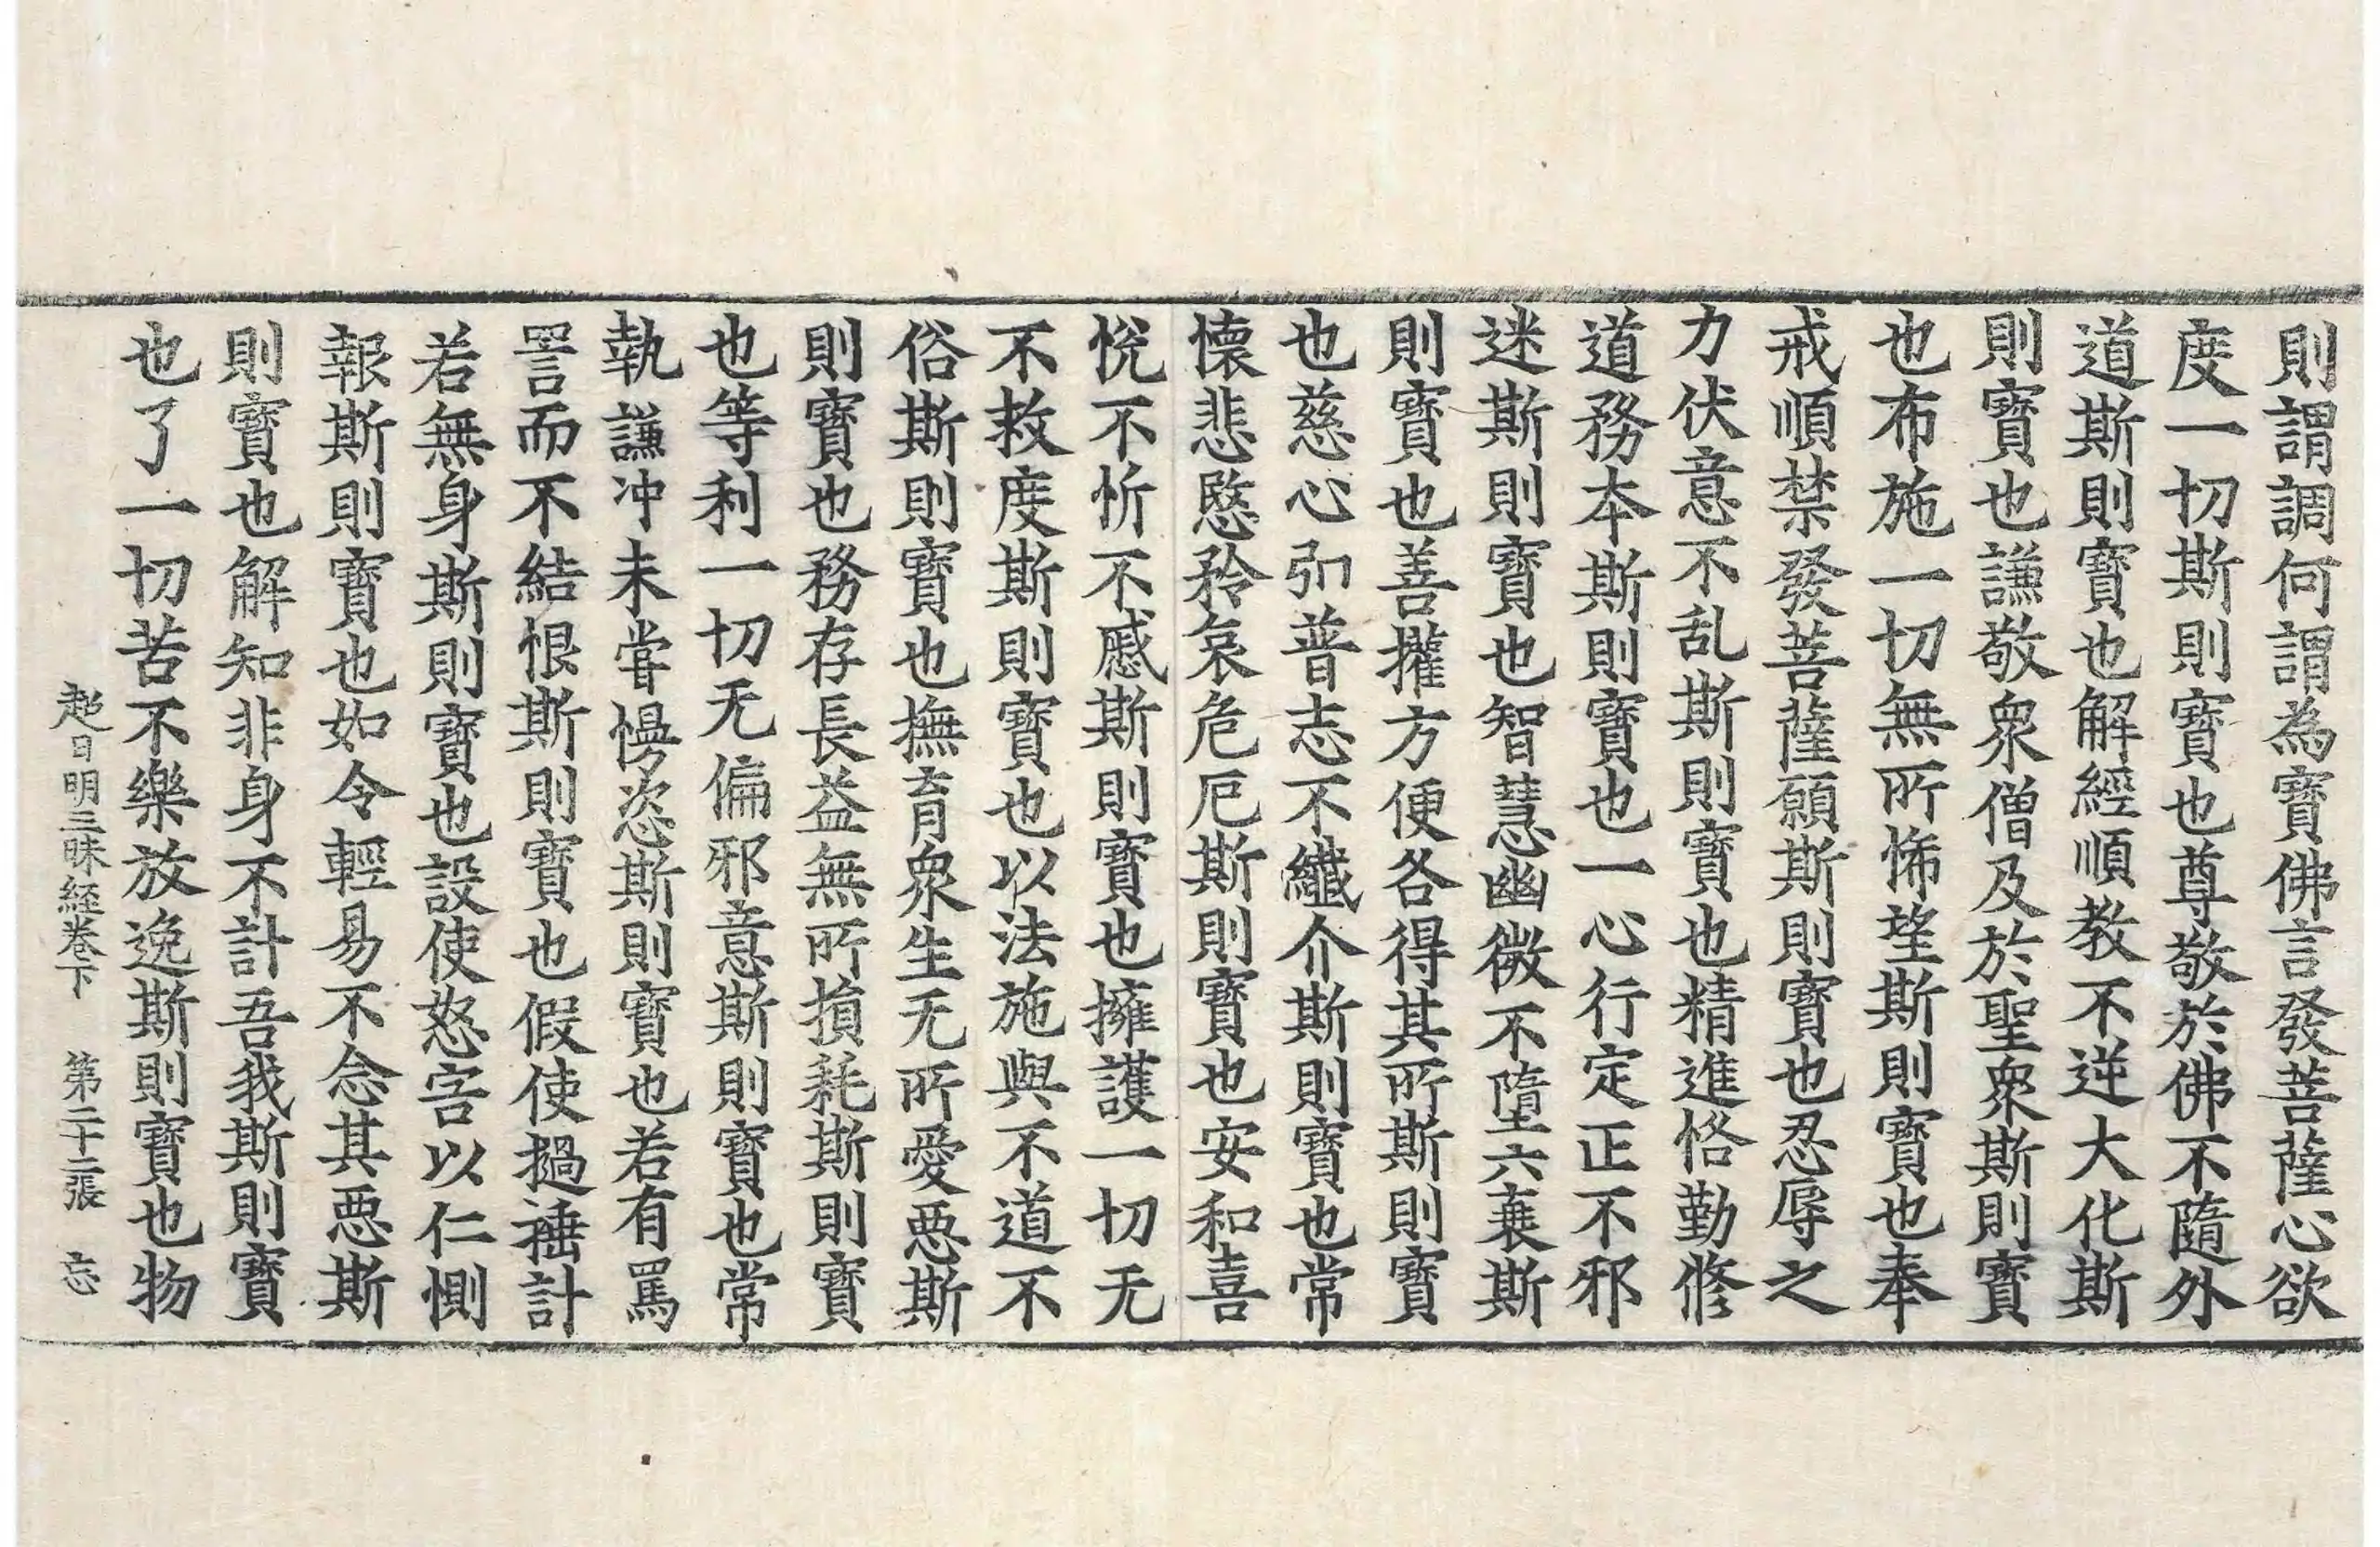 則謂調何謂為寶佛言發菩薩心欲
度一切斯則寶也尊敬於佛不隨外
道斯則寶也解經順教不逆大化斯
則寶也謙敬衆僧及於聖衆斯則寶
也布施一切無所悕望斯則寶也奉
戒順禁發菩薩願斯則寶也忍辱之
力伏意不乱斯則寶也精進恪勤修
道務本斯則寶也一心行定正不邪
迷斯則寶也智慧幽微不墮六衰斯
則寶也善攉方便各得其所斯則寶
也慈心弘普志不纎介斯則寶也常
懷悲愍矜哀危厄斯則寶也安和喜
悅不忻不慼斯則寶也擁護一切无
不救度斯則寶也以法施與不道不
俗斯則寶也撫育衆生无所愛惡斯
則寶也務存長益無所損耗斯則寶
也等利一切无偏邪意斯則寶也常
執謙冲未甞慢恣斯則寶也若有罵
詈而不結恨斯則寶也假使撾捶計
若無身斯則寶也設使怒害以仁惻
報斯則寶也如令輕易不念其惡斯
則寶也解知非身不計吾我斯則寶
也了一切苦不樂放逸斯則寶也物
超日明三昧経卷下 第二十二張 忘